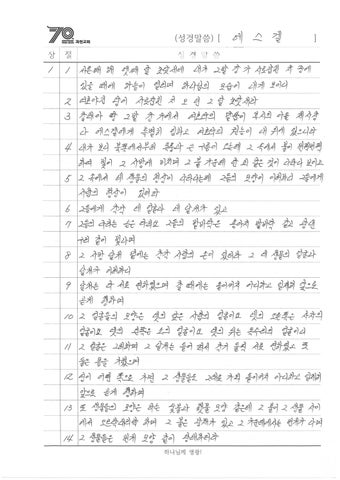 70 과천교회
(성경말씀) [ 에스겔 ]
장 절 성경말씀
1 1 서른째 해 넷째 달 초닷새에 내가 그발 강 가 사로잡힌 자 중에
있을 때에 하늘이 열리며 하나님의 모습이 내게 보이니
2 여호야긴 왕이 사로잡힌 지 오 년 그 달 초닷새라
3 갈대아 땅 그발 강 가에서 여호와의 말씀이 부시의 아들 제사장
나 에스겔에게 특별히 임하고 여호와의 권능이 내 위에 있으니라
4 내가 보니 북쪽에서부터 폭풍과 큰 구름이 오는데 그 속에서 불이 번쩍번쩍
하여 빛이 그 사방에 비치며 그 불 가운데 단 쇠 같은 것이 나타나 보이고
5 그 속에서 네 생물의 형상이 나타나는데 그들의 모양이 이러하니 그들에게
사람의 형상이 있더라
6 그들에게 각각 네 얼굴과 네 날개가 있고
7 그들의 다리는 곧은 다리요 그들의 발바닥은 송아지 발바닥 같고 광낸
구리 같이 빛나며
8 그 사방 날개 밑에는 각각 사람의 손이 있더라 그 네 생물의 얼굴과
날개가 이러하니
9 날개는 다 서로 연하였으며 갈 때에는 돌이키지 아니하고 일제히 앞으로
곧게 행하며
10 그 얼굴들의 모양은 넷의 앞은 사람의 얼굴이요 넷의 오른쪽은 사자의
얼굴이요 넷의 왼쪽은 소의 얼굴이요 넷의 뒤는 독수리의 얼굴이니
11 그 얼굴은 그러하며 그 날개는 들어 펴서 각기 둘씩 서로 연하였고 또
둘은 몸을 가렸으며
12 영이 어떤 쪽으로 가면 그 생물들도 그대로 가되 돌이키지 아니하고 일제히
앞으로 곧게 행하며
13 또 생물들의 모양은 타는 숯불과 횃불 모양 같은데 그 불이 그 생물 사이
에서 오르락내리락 하며 그 불은 광채가 있고 그 가운데에서는 번개가 나며
14 그 생물들은 번개 모양 같이 왕래하더라
하나님께 영광!